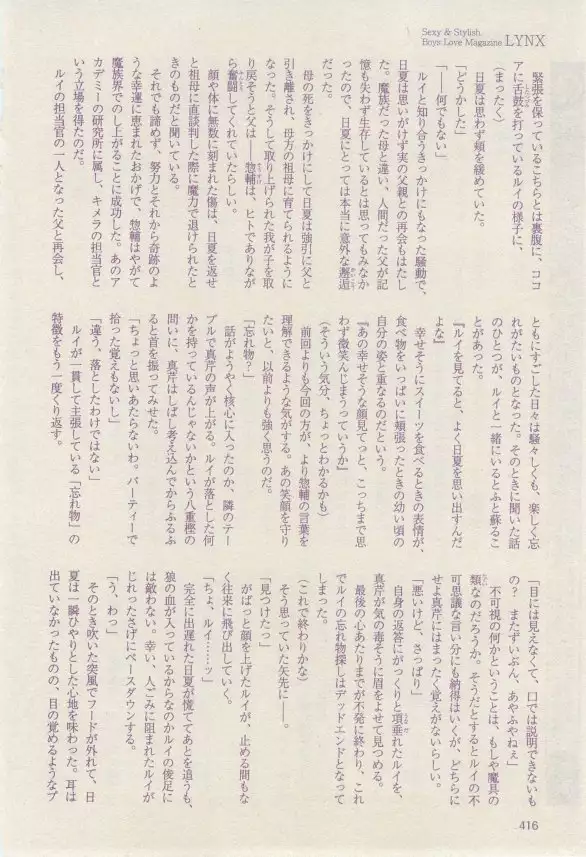 Sexy & Stylish
Boys Love Magazine LYNX
緊張を保っているこちらとは裏腹に、ココ
アに舌鼓を打っているルイの様子に、
（まったく）
日夏は思わず頬を緩めていた。
「どうかした」
「――何でもない」
ルイと知り合うきっかけにもなった騒動で、
日夏は思いがけず実の父親との再会もはたし
た。魔族だった母と違い、人間だった父が記
憶も失わず生存しているとは思ってもみなか
ったので、日夏にとっては本当に意外な邂逅
だった。
母の死をきっかけにして日夏は強引に父と
引き離され、母方の祖母に育てられるように
なった。そうして取り上げられた我が子を取
り戻そうと父は――惣輔は、ヒトでありなが
ら奮闘してくれていたらしい。
顔や体に無数に刻まれた傷は、日夏を返せ
と祖母に直談判した際に魔力で退けられたと
きのものだと聞いている。
それでも諦めず、努力とそれから奇跡のよ
うな幸運に恵まれたおかげで、惣輔はやがて
魔族界でのし上がることに成功した。あのア
カデミーの研究所に属し、キメラの担当官と
いう立場を得たのだ。
ルイの担当官の一人となった父と再会し、
ともにすごした日々は騒々しくも、楽しく忘
れがたいものとなった。そのときに聞いた話
のひとつが、ルイと一緒にいるとふと蘇るこ
とがあった。
『ルイを見てると、よく日夏を思い出すんだ
よな』
幸せそうにスイーツを食べるときの表情が、
食べ物をいっぱいに頬張ったときの幼い頃の
自分の姿と重なるのだという。
『あの幸せそうな顔見てっと、こっちまで思
わず微笑んじまうっていうか』
（そういう気分、ちょっとわかるかも）
前回よりも今回の方が、より惣輔の言葉を
理解できるような気がする。あの笑顔を守り
たいと、以前よりも強く思うのだ。
「忘れ物？」
話がようやく核心に入ったのか、隣のテー
ブルで真芹の声が上がる。ルイが落とした何
かを持っているんじゃないかという八重樫の
問いに、真芹はしばし考え込んでからふるふ
ると首を振ってみせた。
「ちょっと思いあたらないわ。パーティーで
拾った覚えもないし」
「違う、落としたわけではない」
ルイが一貫して主張している「忘れ物」の
特徴をもう一度くり返す。
「目には見えなくて、口では説明できないも
の？　またずいぶん、あやふやねぇ」
不可視の何かということは、もしや魔具の
類なのだろうか。そうだとするとルイの不
可思議な言い分にも納得はいくが、どちらに
せよ真芹にはまったく覚えがないらしい。
「悪いけど、さっぱり」
自身の返答にがっくりと項垂れたルイを、
真芹が気の毒そうに眉をよせて見つめる。
最後の心あたりまでが不発に終わり、これ
でルイの忘れ物探しはデッドエンドとなって
しまった。
（これで終わりかな）
そう思っていた矢先に――。
「見つけたっ」
がばっと顔を上げたルイが、止める間もな
く往来に飛び出していく。
「ちょ、ルイ……ッ」
完全に出遅れた日夏が慌ててあとを追うも、
狼の血が入っているからなのかルイの俊足に
は敵わない。幸い、人ごみに阻まれたルイが
じれったさげにペースダウンする。
「う、わっ」
そのとき吹いた突風でフードが外れて、日
夏は一瞬ひやりとした心地を味わった。耳は
出ていなかったものの、目の覚めるようなプ
416